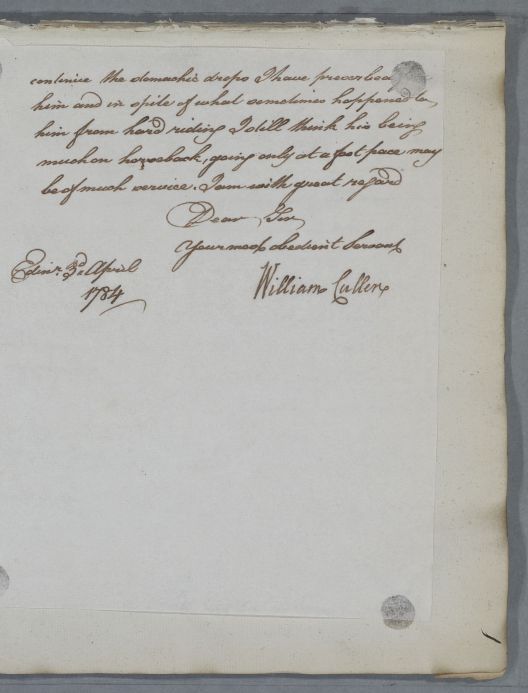 continue the stomachic drops I have prescribed
him and in spite of what sometimes happened to
him from hard riding I still think his being
much on horseback, going only at a foot pace may
be of much service. I am with great regard
Dear Sir
Your most obedient Servant
Edinr. 3d. April
1784
William Cullen